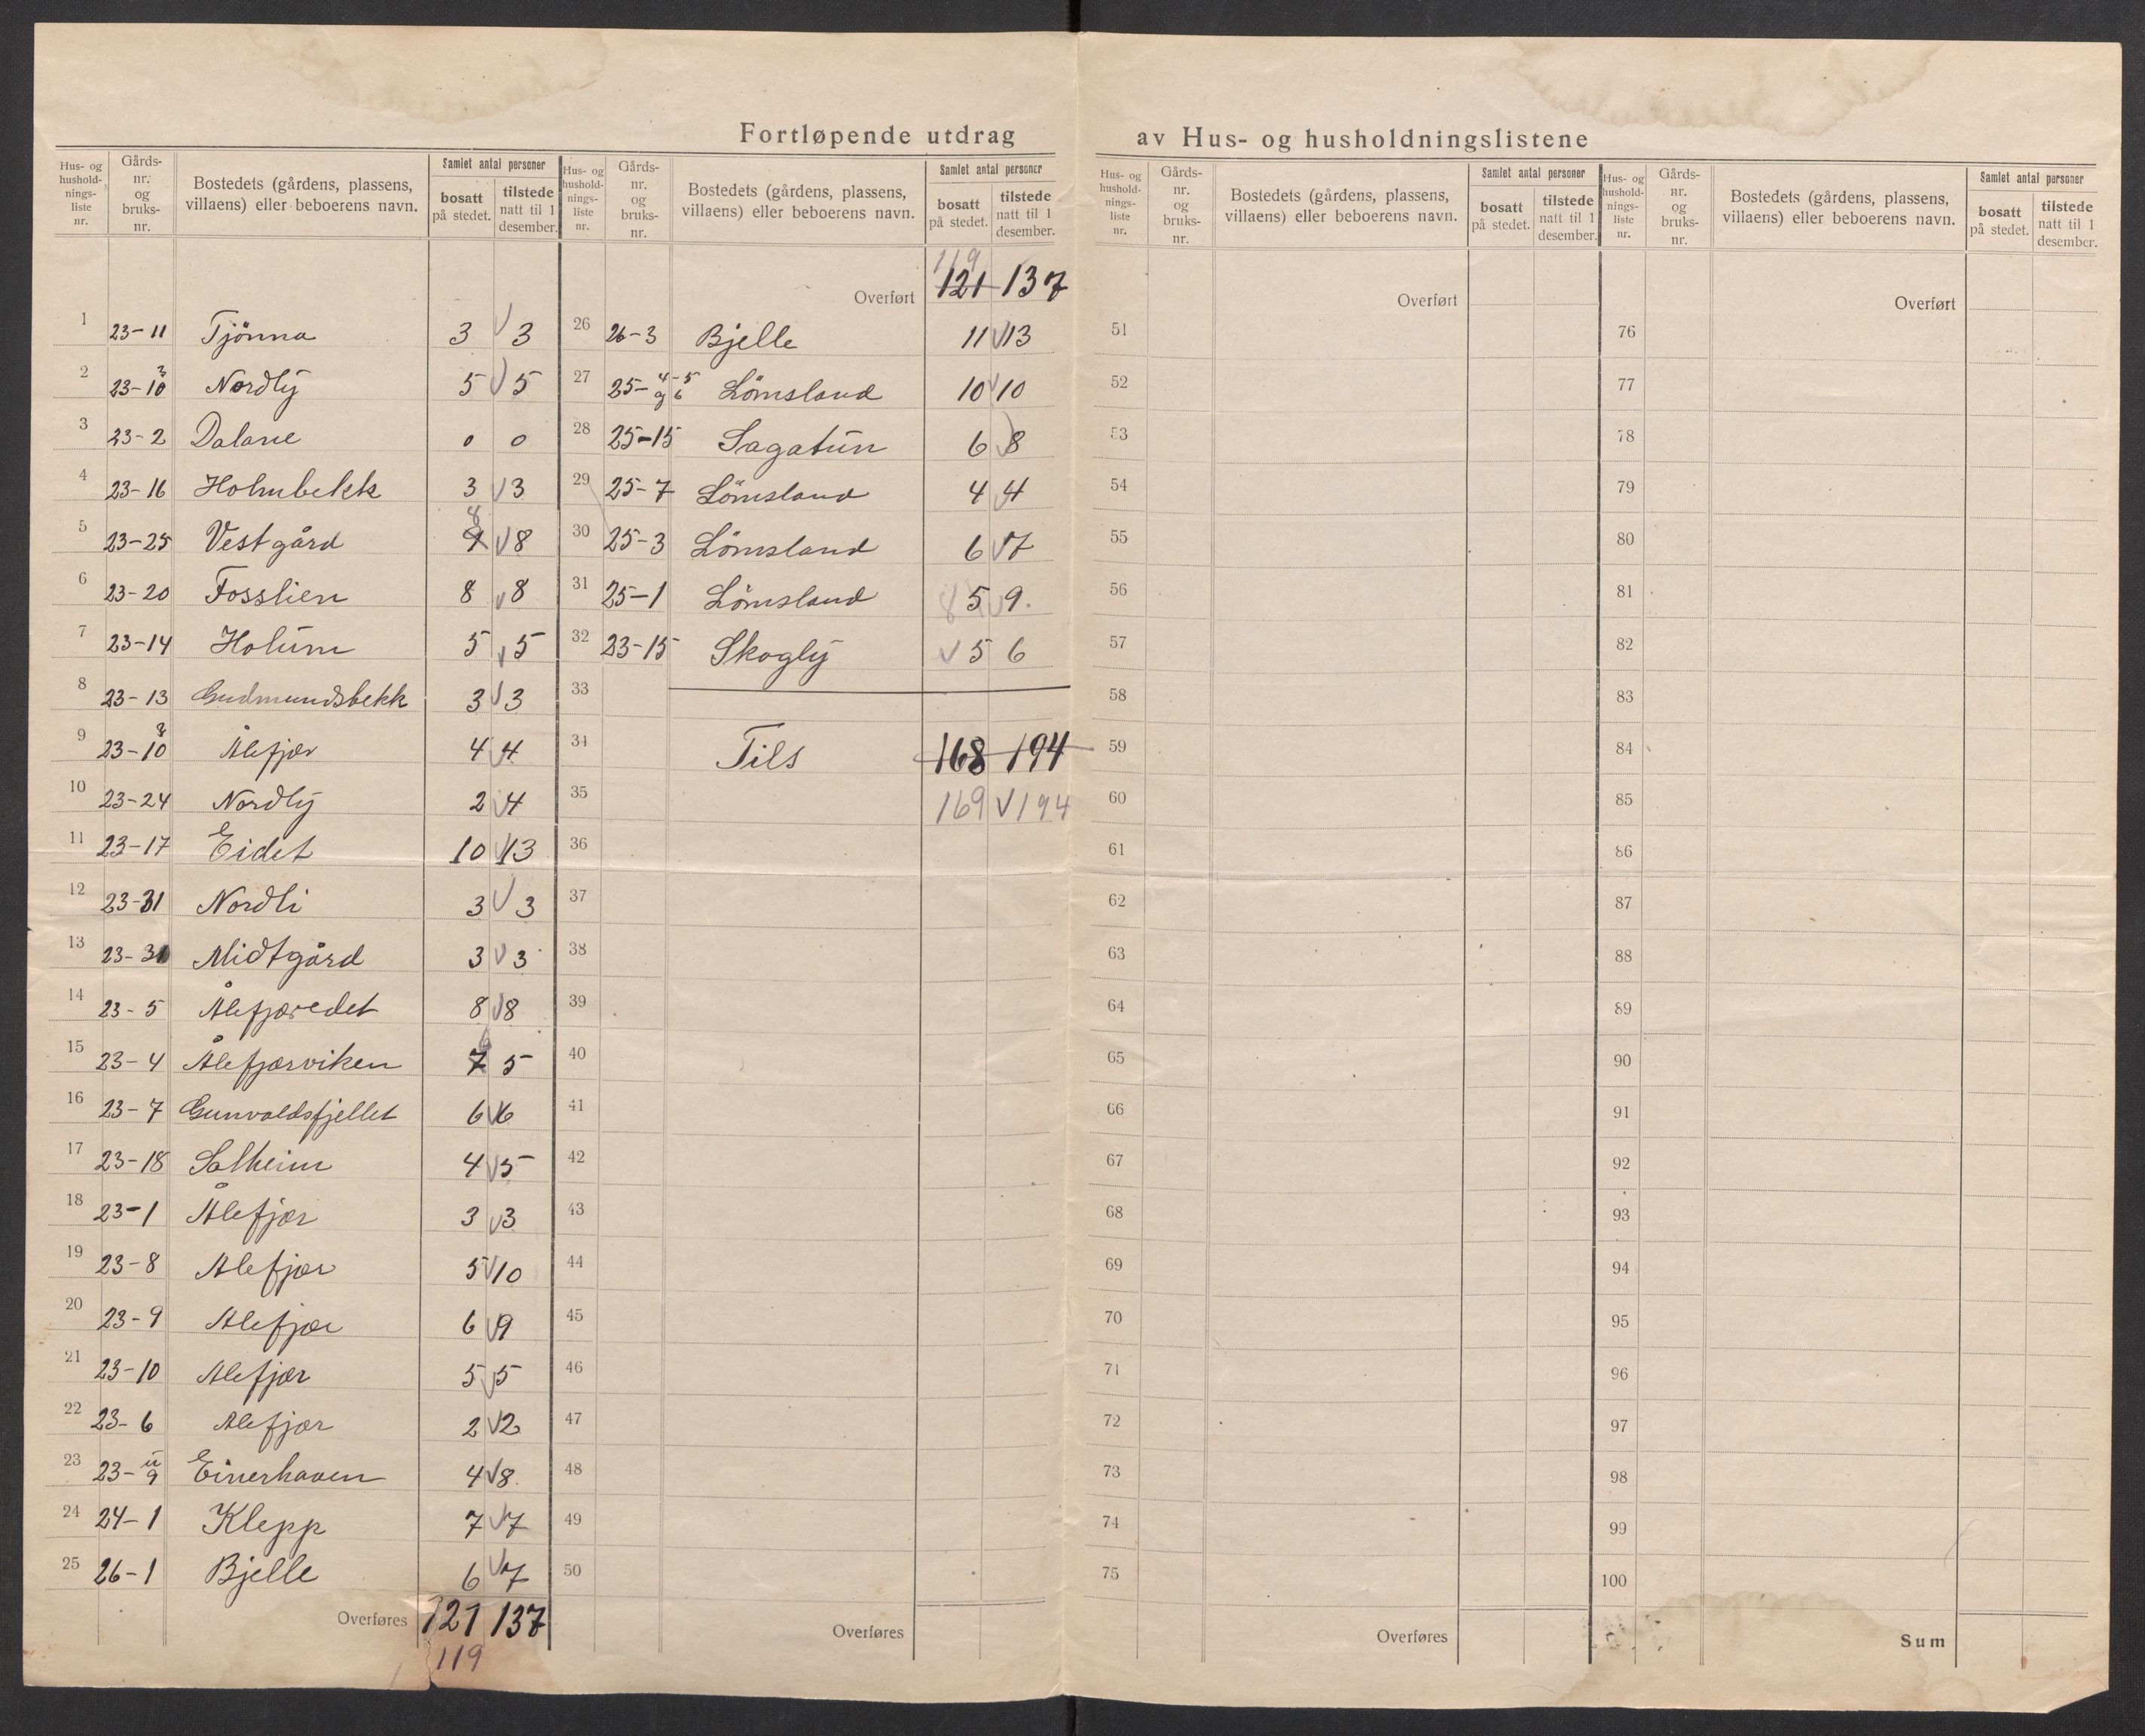 Fortløpende utdrag av Hus- og husholdningslistene
Hus- og husholdnings- liste nr. | Gårds- nr. og bruks- nr. | Bostedets (gårdens, plassens, villaens) eller beboerens navn. | Samlet antal personer | bosatt på stedet. | tilstede natt til 1 desember.
1 23-11 Tjönna 3 V 3
2 23-10 3 Nordly 5 V 5
3 23-2 Dalane 0 0
4 23-16 Holmbekk 3 V 3
5 23-25 Vestgård 8 V 8
6 23-20 Fosslien 8 V 8
7 23-14 Holum 5 V 5
8 23-13 Gudmundsbekk 3 V 3
9 23-10 Ålefjær 4 V 4
10 23-24 Nordly 2 V 4
11 23-17 Eidet 10 V 13
12 23-31 Nordli 3 V 3
13 23-3 Midtgård 3 V 3
14 23-5 Ålefjæredet 8 V 8
15 23-4 Ålefjærviken 6 7 5
16 23-7 Gunvaldsfjellet 6 V 6
17 23-18 Solheim 4 V 5
18 23-1 Ålefjær 3 V 3
19 23-8 Alefjær 5 V 10
20 23-9 Alefjær 6 V 9
21 23-10 Alefjær 5 V 5
22 23-6 Alefjær 2 V 2
23 23-9 Einerhaven 4 V 8
24 24-1 Klepp 7 V 7
25 26-1 Bjelle 6 V 7
Overføres 121 137
119
Hus- og husholdnings- liste nr. | Gårds- nr. og bruks- nr. | Bostedets (gårdens, plassens, villaens) eller beboerens navn. | Samlet antal personer | bosatt på stedet. | tilstede natt til 1 desember.
119
Overført 121 137
26 26-3 Bjelle 11 V 13
27 25-4-5 og 6 Lömsland 10 V 10
28 25-15 Sagatun 6 V 8
29 25-7 Lömsland 4 V 4
30 25-3 Lömsland 6 V 7
31 25-1 Lömsland 8 5 V 9.
32 23-15 Skogly V 5 6
33
34 Tils 168 194
35 169 V 194
36
37
38
39
40
41
42
43
44
45
46
47
48
49
50
Overføres
Hus- og husholdnings- liste nr. | Gårds- nr. og bruks- nr. | Bostedets (gårdens, plassens, villaens) eller beboerens navn. | Samlet antal personer | bosatt på stedet. | tilstede natt til 1 desember.
Overført
51
52
53
54
55
56
57
58
59
60
61
62
63
64
65
66
67
68
69
70
71
72
73
74
75
Overføres
Hus- og husholdnings- liste nr. | Gårds- nr. og bruks- nr. | Bostedets (gårdens, plassens, villaens) eller beboerens navn. | Samlet antal personer | bosatt på stedet. | tilstede natt til 1 desember.
Overført
76
77
78
79
80
81
82
83
84
85
86
87
88
89
90
91
92
93
94
95
96
97
98
99
100
Sum